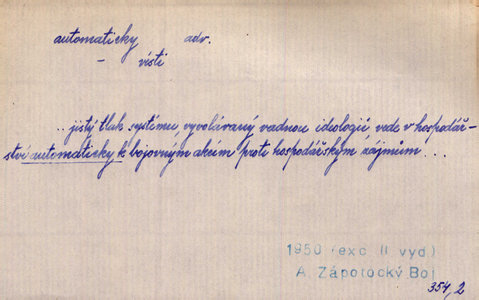 automaticky adv.
– vésti
..jistý tlak systému, vyvolávaný vadnou ideologií, vede v hospodář-
ství automaticky k bojovným akcím proti hospodářským zájmům ...
1950 (exc II vyd)
A Zápotocký Boj
354,2